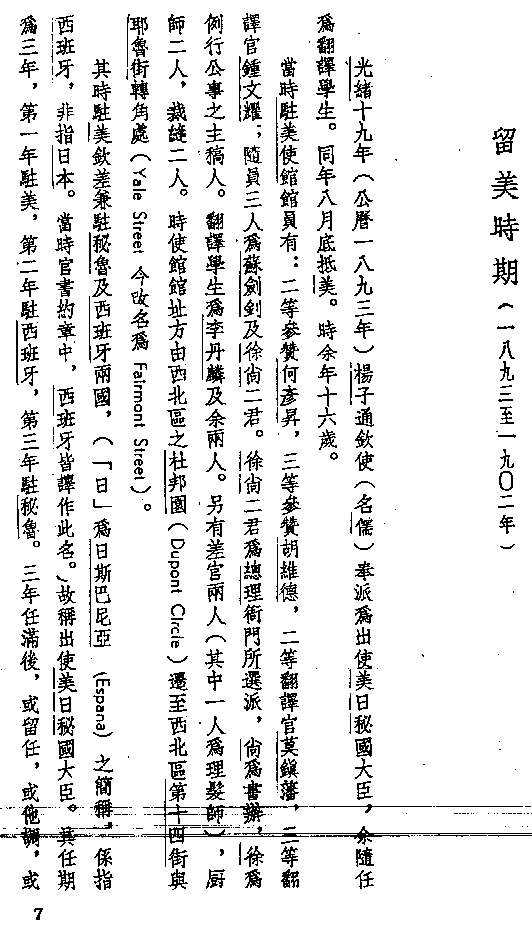 留美時期(一八九三至一九〇二年)
光緒十九年(公曆一八九三年)楊子通欽使(名儒)奉派爲出使美日秘國大臣,余隨任
爲翻譯學生。同年八月底抵美。時余年十六歲。
當時駐美使館館員有:二等參贊何彥昇,三等參贊胡維德,二等翻譯官莫鎭藩,三等翻
譯官鍾文耀;隨員三人爲蘇劍釗及徐尙二君。徐尙二君爲總理衙門所選派,尙爲書辦,徐爲
例行公事之主稿人。翻譯學生爲李丹麟及余兩人。另有差官兩人(其中一人爲理髮師),厨
師二人,裁縫二人。時使館館址方由西北區之杜邦園(Dupont Circle)遷至西北區第十四街與
耶魯街轉角處(Yale Street 今改名爲 Fairmont Street)。
其時駐美欽差兼駐秘魯及西班牙兩國,(「日」爲日斯巴尼亞 (Espana) 之簡稱,係指
西班牙,非指日本。當時官書約章中,西班牙皆譯作此名。)故稱出使美日秘國大臣。其任期
爲三年,第一年駐美,第二年駐西班牙,第三年駐秘魯。三年任滿後,或留任,或他調,或
7